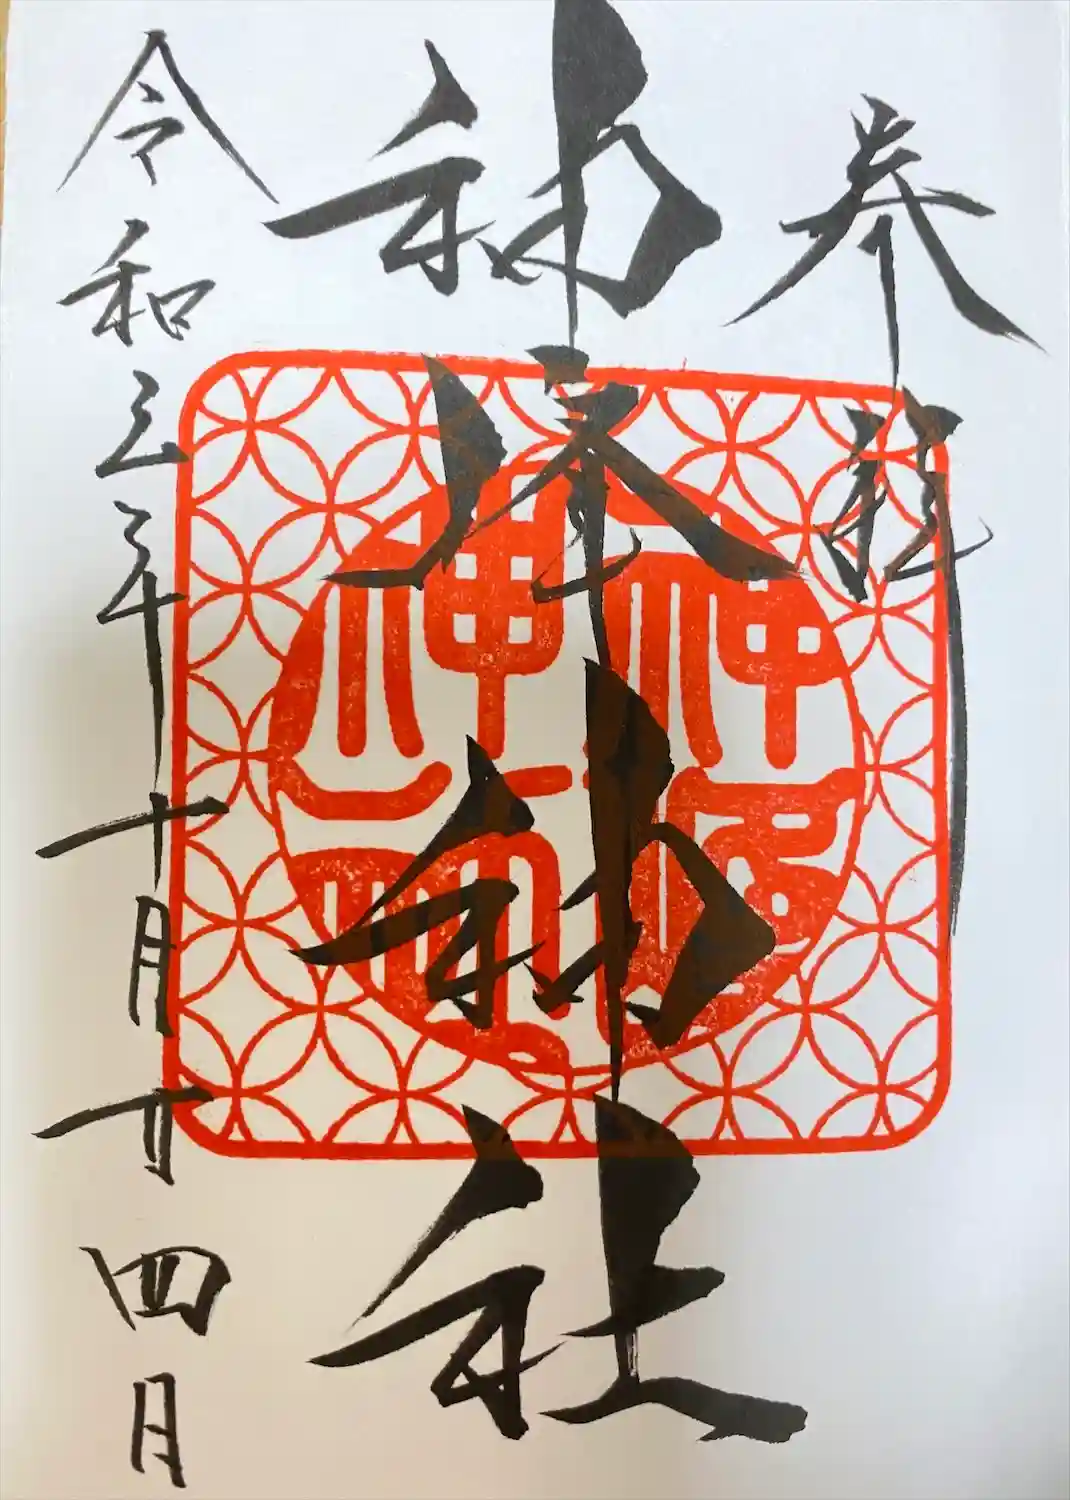 奉拝
神峰神社
令和三年十月十四日